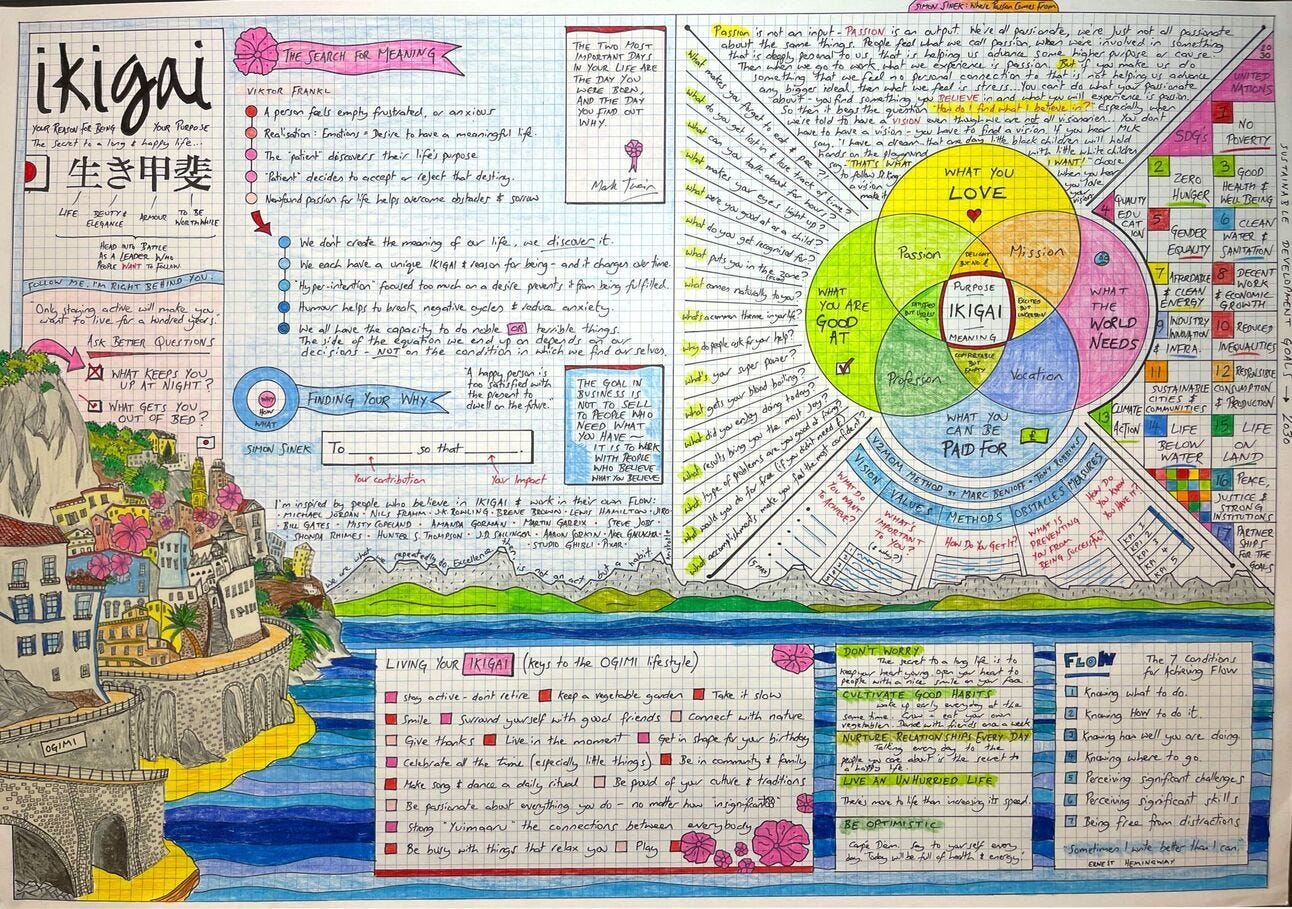 SIMON SINEK: Where Passion Comes From
ikigai
YOUR REASON FOR BEING
YOUR PURPOSE
The secret to a long & happy life...
生き甲斐
LIFE
BEUTY & ELEGANCE
ARMOUR
TO BE WORTHWHILE
HEAD INTO BATTLE
AS A LEADER WHO
PEOPLE WANT TO FOLLOW.
FOLLOW ME, I'M RIGHT BEHIND YOU.
"Only staying active will make you
want to live for a hundred years."
ASK BETTER QUESTIONS
WHAT KEEPS YOU
UP AT NIGHT?
WHAT GETS YOU
OUT OF BED?
OGIMI
THE SEARCH FOR MEANING
VIKTOR FRANKL
A person feels empty, frustrated, or anxious
Realisation: Emotions = Desire to have a meaningful life.
The "patient" discovers their life's purpose
"Patient" decides to accept or reject that destiny.
Newfound passion for life helps overcome obstacles & sorrow
We don't create the meaning of our life, we discover it.
We each have a unique IKIGAI & reason for being - and it changes over time.
"Hyper-intention" focused too much on a desire prevents it from being fulfilled.
Humour helps to break negative cycles & reduce anxiety.
We all have the capacity to do noble OR terrible things.
The side of the equation we end up on depends on our
decisions - NOT on the condition in which we find ourselves
THE TWO MOST
IMPORTANT DAYS
IN YOUR LIFE ARE
THE DAY YOU
WERE BORN,
AND THE DAY
YOU FIND OUT
WHY.
Mark Twain
WHY
HOW
WHAT
FINDING YOUR WHY
"A happy person is
too satisfied with
the present to
dwell on the future."
SIMON SINEK
To ______ so that ______.
Your contribution
Your Impact
THE GOAL IN
BUSINESS IS
NOT TO SELL
TO PEOPLE WHO
NEED WHAT
YOU HAVE -
IT IS TO WORK
WITH PEOPLE
WHO BELIEVE
WHAT YOU BELIEVE
I'm inspired by people who believe in IKIGAI & work in their own FLOW:
MICHAEL JORDAN · NILS FRAHM · J.K. ROWLING · BRENE BROWN · LEWIS HAMILTON · JIRO
BILL GATES · MISTY COPELAND · AMANDA GORMAN · MARTIN GARRIX · STEVE JOBS
SHONDA RHIMES · HUNTER S. THOMPSON · J.D. SALINGER · AARON SORKIN · NEEL
STUDIO GHIBLI · PIXAR
We are what we repeatedly do. Excellence then is not an act, but a habit.
Passion is not an input - PASSION is an output. We're all passionate, we're just not all passionate
about the same things. People feel what we call passion when we're involved in something
that is deeply personal to us, that is helping us advance some higher purpose or cause -
Then when we go to work, what we experience is passion. But if you make us do
something that we feel no personal connection to that is not helping us advance
any bigger ideal, then what we feel is stress. You can't do what you're passionate
about - you find something you BELIEVE in and what you will experience is passion.
So then it begs the question "How do I find what I believe in?" Especially when
we're told to have a VISION even though we are not all visionaries. You don't
have to have a vision - you have to find a vision. If you hear MLK
say, "I have a dream... that one day little black children will hold
hands on the playground with little white children
say, "THAT'S WHAT I WANT!" Choose
What makes you forget to eat & pee?
What do you get lost in & lose track of time?
What can you talk about for hours?
What makes your eyes light up?
What were you good at as a child?
What do you get recognised for?
What puts you in the zone?
What comes naturally to you?
What's a common theme in your life?
Why do people ask for your help?
What's your super power?
What gets your blood boiling?
What did you enjoy doing today?
What results bring you the most joy?
What type of problems are you good at solving?
What would you do for free (if you didn't need $)?
What accomplishments make you feel the most confident?
WHAT YOU
LOVE
Passion
DELIGHT BUT NO $
Mission
WHAT YOU ARE
GOOD AT
PURPOSE
IKIGAI
MEANING
EXCITED BUT UNCERTAIN
WHAT THE
WORLD NEEDS
Profession
COMFORTABLE BUT EMPTY
Vocation
WHAT YOU
CAN BE
PAID FOR
£
V2MOM METHOD by MARC BENIOFF + TONY ROBBINS
VISION
VALUES
METHODS
OBSTACLES
MEASURES
WHAT DO YOU WANT TO ACHIEVE?
WHAT'S IMPORTANT TO YOU?
(& why?)
HOW DO YOU GET IT?
WHAT IS PREVENTING YOU FROM BEING SUCCESSFUL?
HOW DO YOU KNOW YOU HAVE IT?
(5 max)
KPI 1
KPI 2
KPI 3
KPI 4
KPI 5
2030
UNITED NATIONS
SDG's
SUSTAINABLE DEVELOPMENT GOALS → 2030
1 NO POVERTY
2 ZERO HUNGER
3 GOOD HEALTH & WELL BEING
4 QUALITY EDUCATION
5 GENDER EQUALITY
6 CLEAN WATER & SANITATION
7 AFFORDABLE & CLEAN ENERGY
8 DECENT WORK & ECONOMIC GROWTH
9 INDUSTRY INNOVATION & INFRA.
10 REDUCED INEQUALITIES
11 SUSTAINABLE CITIES & COMMUNITIES
12 RESPONSIBLE CONSUMPTION & PRODUCTION
13 CLIMATE ACTION
14 LIFE BELOW WATER
15 LIFE ON LAND
16 PEACE, JUSTICE & STRONG INSTITUTIONS
17 PARTNERSHIPS FOR THE GOALS
LIVING YOUR IKIGAI (keys to the OGIMI lifestyle)
stay active - don't retire
Keep a vegetable garden
Take it slow
Smile
Surround yourself with good friends
Connect with nature
Give thanks
Live in the moment
Get in shape for your birthday
Celebrate all the time (especially little things)
Be in community & family
Make song & dance a daily ritual
Be proud of your culture & traditions
Be passionate about everything you do - no matter how insignificant
Strong "Yuimaaru" the connections between everybody
Be busy with things that relax you
Play
DON'T WORRY
The secret to a long life is to
keep your heart young. Open your heart to
people with a nice smile on your face.
CULTIVATE GOOD HABITS
wake up early everyday at the
same time. Grow & eat your own
vegetables. Dance with friends once a week
NURTURE RELATIONSHIPS EVERY DAY
Talking every day to the
people you care about is the secret to
a happy life.
LIVE AN UNHURRIED LIFE
There's more to life than increasing its speed.
BE OPTIMISTIC
Carpe Diem. Say to yourself every
day, "Today will be full of health & energy!"
FLOW
The 7 Conditions
for Achieving Flow
1 Knowing what to do.
2 Knowing HOW to do it.
3 Knowing how well you are doing
4 Knowing where to go.
5 Perceiving significant challenges
6 Perceiving significant skills
7 Being free from distractions
"Sometimes I write better than I can."
ERNEST HEMINGWAY